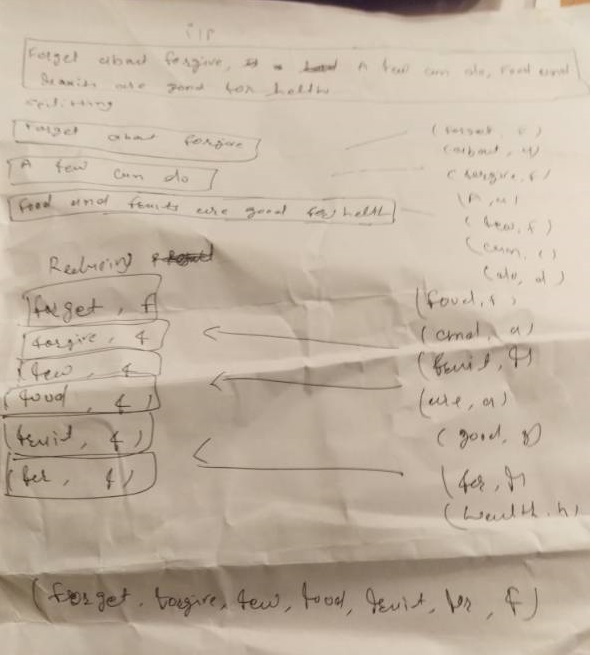 i/p
Forget about forgive, A few can do, Food and
fruits are good for health
Splitting
Forget about forgive
A few can do
Food and fruits are good for health
(forget, f)
(about, a)
(forgive, f)
(A, a)
(few, f)
(can, c)
(do, d)
(food, f)
(and, a)
(fruit, f)
(are, a)
(good, g)
(for, f)
(health, h)
Reducing
(forget, f
(forgive, f
(few, f
(food, f)
(fruit, f)
(for, f)
(forget, forgive, few, food, fruit, for, f)